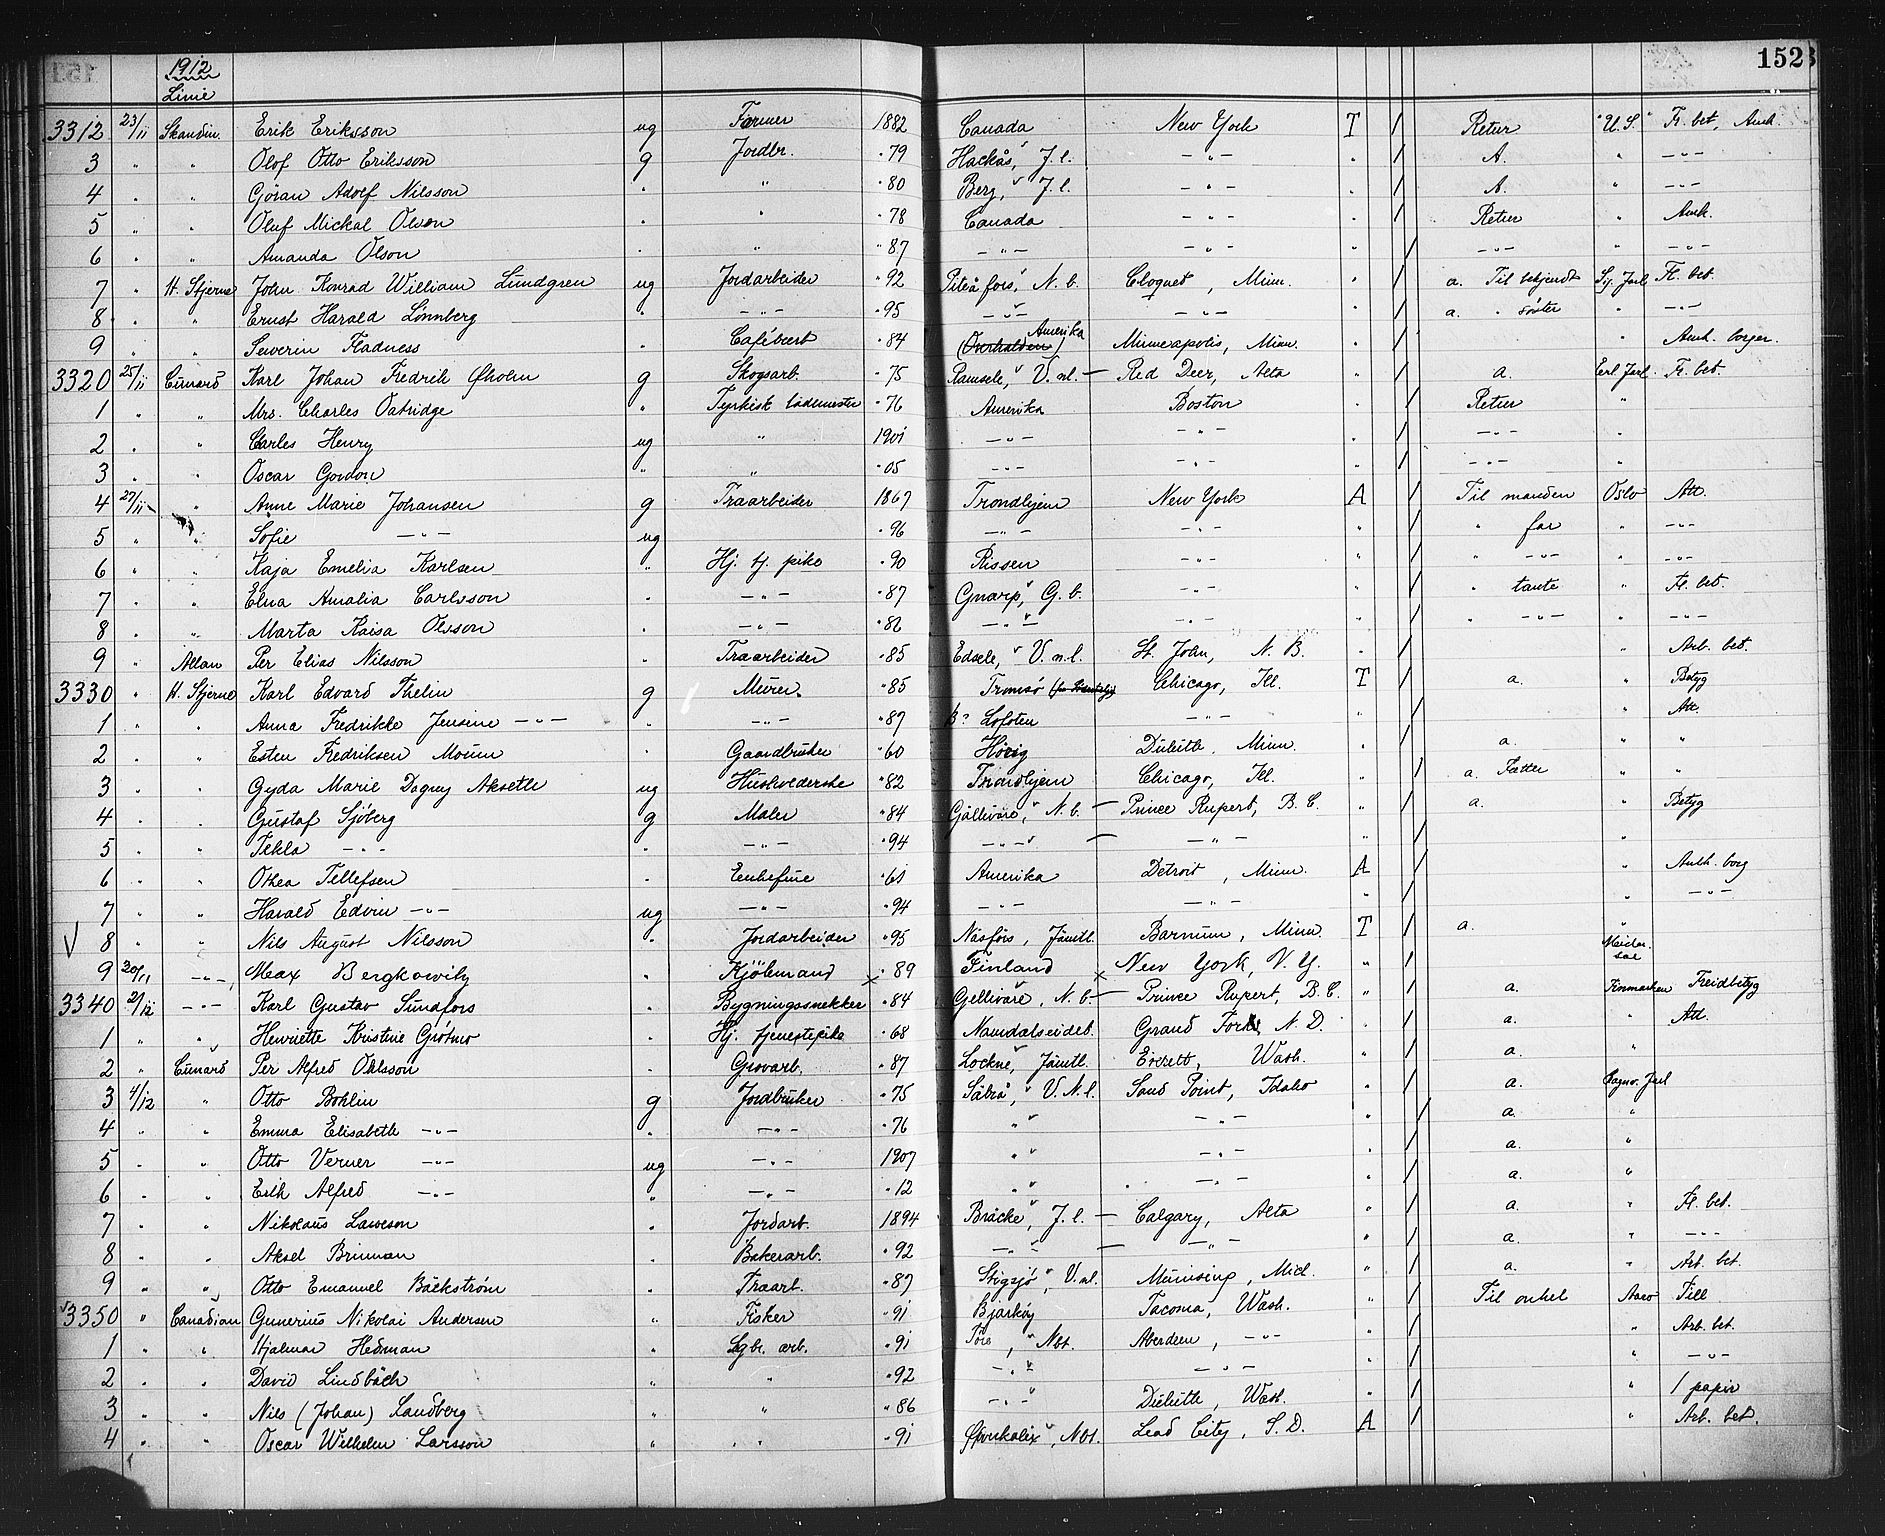 1912 152
Linie
3312 23/11 Skandin. Erik Eriksson ug Farmer 1882 Canada New York T / Retur "U.S." Fl. bet, Amk.
3 " " Olof Otto Eriksson g Jordbr. " 79 Hackås, J.l. — " — " / A. " — " —
4 " " Göran Adolf Nilsson " " " 80 Berg, J.l. — " — " / A. " — " —
5 " " Oluf Mickal Olson " " " 78 Canada — " — " / Retur " Amk.
6 " " Amanda Olson " " " 87 — " — — " — " / — " — " — " —
7 " H. Stjerne John Konrad William Lundgren ug Jordarbeider " 92 Piteåfors, N.b. Cloquet, Minn. " / a. Til bekjendt Sig. Jarl Fl. bet.
8 " " Ernst Harald Lönnberg " — " — " 95 — " — — " — " / a. " søster " — " —
9 " " Severin Fladness " Cafévært " 84 (Overhalden) Amerika Minneapolis, Minn. " / " Amk. borger.
3320 25/11 Cunard Karl Johan Fredrik Øholm g Skogsarb. " 75 Ramsele, V.nl. — Red Deer, Alta " / a. Erl. Jarl Fl. bet.
1 " " Mrs. Charles Oatridge " Tyrkisk bademester " 76 Amerika Boston " / Retur "
2 " " Carles Henry ug " 1901 — " — — " — " / — " — "
3 " " Oscar Gordon " " " 05 — " — — " — " / — " — "
4 27/11 " Anne Marie Johansen g Traarbeider 1867 Trondhjem New York A / Til manden Oslo Att.
5 " " Sofie — " — ug " 96 — " — — " — " / " far " — " —
6 " " Kaja Emelia Karlsen " Hj. tj. pike " 90 Rissen — " — " / " — " — " — " —
7 " " Elna Amalia Carlsson " — " — " 87 Gnarp, G.b. — " — " / " tante " Fl. bet.
8 " " Marta Kaisa Olsson " — " — " 82 — " — — " — " / " — " — " — " —
9 " Allan Per Elias Nilsson " Traarbeider " 85 Edsele, V.n.l. St. John, N.B. " / " Arb. bet.
3330 " H. Stjerne Karl Edvard Thelin g Murer " 85 Tromsø Chicago, Ill. T / a. " Betyg
1 " " Anna Fredrikke Jensine — " — " — " — " 87 Lofoten — " — " / " Att.
2 " " Esten Fredriksen Moum " Gaardbruker " 60 Duluth, Minn. " / a. " "
3 " " Gyda Marie Dagny Aksetle ug Husholderske " 82 Trondhjem Chicago, Ill. " / a. Fætter " "
4 " " Gustaf Sjöberg g Maler " 84 Gällivåre, N.b. — Prince Rupert, B.C. " / a. " Betyg
5 " " Tekla — " — " — " — " 94 — " — — — " — " / "
6 " " Othea Tellefsen " Enkefrue " 61 Amerika Detroit, Minn. A / " Amk. borg
7 " " Harald Edvin — " — ug — " — " 94 — " — — " — " / " — " —
8 " " Nils August Nilsson " Jordarbeider " 95 Näsfors, Jämtl. Barnum, Minn. T / a. "
9 30/11 — " — Max Bergkowily " Kjøbmand × " 89 Finland × New York, N.Y. " /
3340 2/12 — " — Karl Gustav Sundfors " Bygningssnekker " 84 Gellivåre, N.b. — Prince Rupert, B.C. " / a. Finmarken Freidbetyg
1 " " Henriette Kristine Grötmo " Hj. tjenestepike " 68 Namdalseidet. Grand Forks, N.D. " / a. " Att
2 " Cunard Per Alfred Ohlsson " Grovarb. " 87 Lockne, Jämtl. Everett, Wash. " / a. "
3 4/12 " Otto Bohlin g Jordbruker " 75 Säbrå, V.N.l. Sand Point, Idaho " / a. Ragnv. Jarl
4 " " Emma Elisabeth — " — " — " — " 76 " " — " — " / a. "
5 " " Otto Verner — " — ug — " — 1907 " " — " — " / a. "
6 " " Erik Alfred — " — " — " — " 12 " " — " — " / a. "
7 " " Nikolaus Lawson " Jordarb. 1894 Bräcke, J.l. — Calgary, Alta " / a. " Fl. bet.
8 " " Aksel Brinman " Bakerarb. " 92 — " — — — " — " / a. " — " —
9 " " Otto Emanuel Bäckström " Traarb. " 87 Stigsjö, V.nl. Munising, Mich. " / a. " Arb. bet.
3350 " Canadian Gunerius Nikolai Andersen " Fisker " 91 Bjarköy Tacoma, Wash. " / Til onkel Aaro Till
1 " " Hjalmar Hedman " Lgbr. arb. " 91 Töre, Nbt. Aberdeen, — " — " / " Arb. bet.
2 " " David Lindbäck " " " 92 — " — — " — " / " — " —
3 " " Nils (Johan) Landberg " " " 86 — " — Duluth, Wash. " / " 1 papir
4 " " Oscar Wilhelm Larsson " " " 91 Øfverkalix, Nbt. Lead City, S.D. A / " Arb. bet.